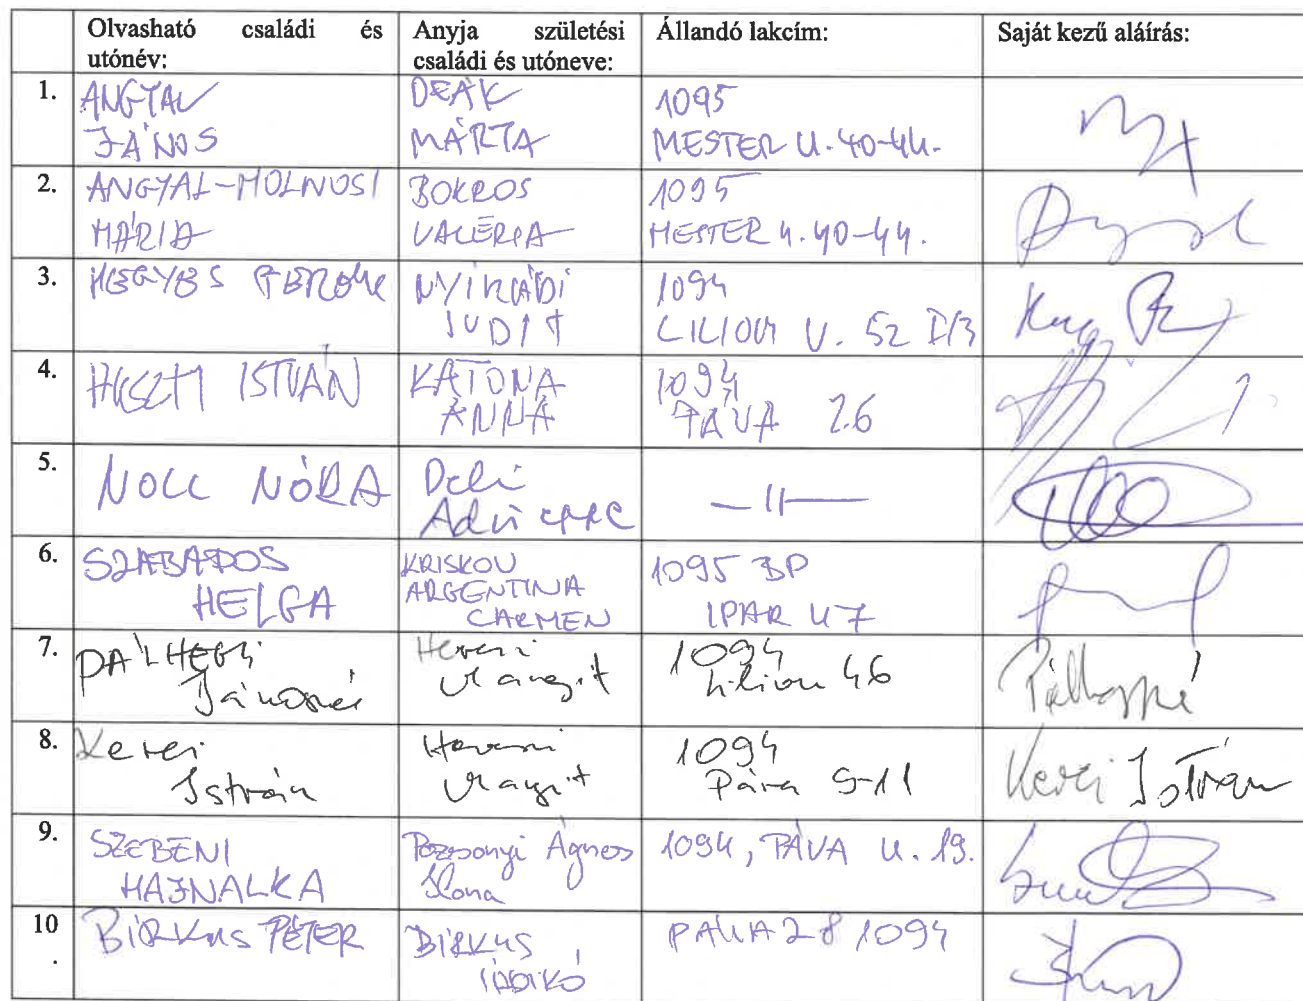 Olvasható családi és utónév:
Anyja születési családi és utóneve:
Állandó lakcím:
Saját kezű aláírás:
1.
ANGYAL
JÁNOS
DEÁK
MÁRTA
1095
MESTER U. 40-44.
2.
ANGYAL-MOLNUSI
MÁRIA
BOKROS
VALÉRIA
1095
MESTER U. 40-44.
3.
HEGYES
NYIRÁDI
JUDIT
1094
LILIOM U. 52 I/3
4.
ISTVÁN
KATONA
ANNA
1094
PÁVA 26
5.
NOLL NÓRA
Deli
—II—
6.
SZABADOS
HELGA
KRISKOV
ARGENTINA
CARMEN
1095 BP
IPAR U 7
7.
PÁLHEGYI
Jánosné
Margit
1094
Liliom 46
8.
Kerei
István
Margit
1094
Páva 9-11
Kerei István
9.
SZEBENI
HAJNALKA
Pozsonyi Ágnes
Ilona
1094, PÁVA U. 19.
10.
BIRKUS PÉTER
BIRKUS
ILDIKÓ
PÁVA 28 1094